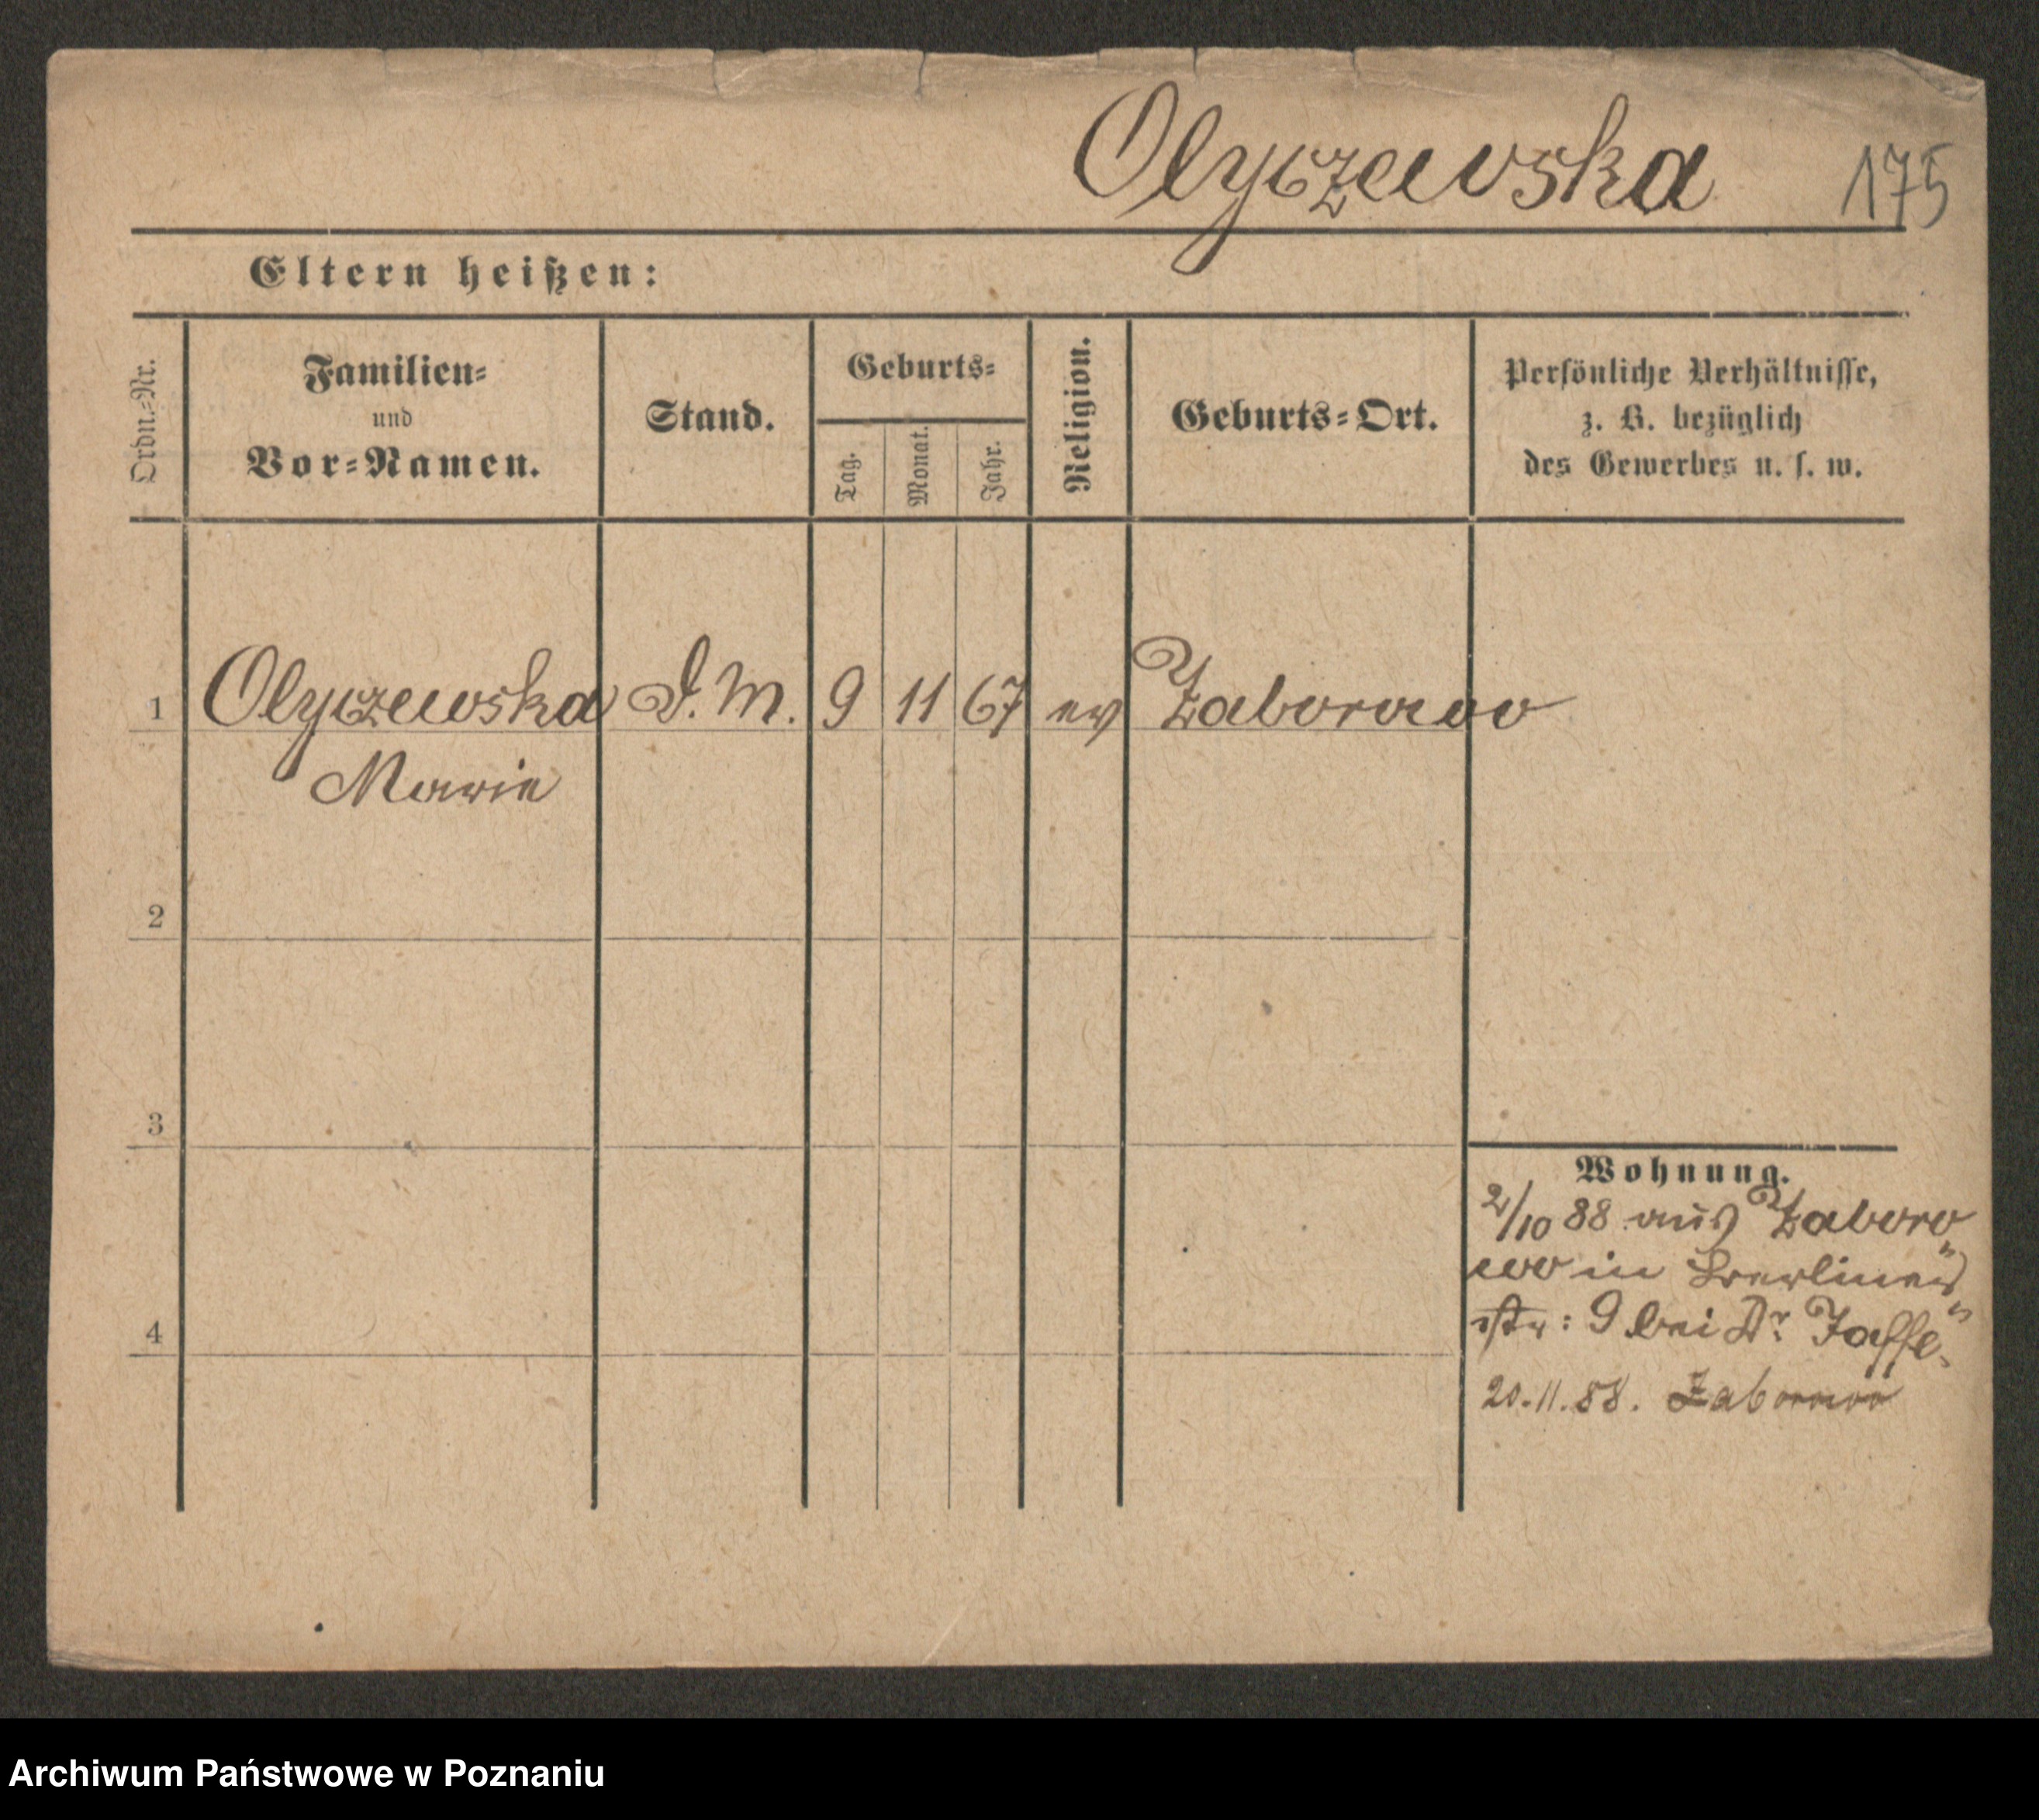 Olyszewska 175
Eltern heißen:
Ordn.-Nr.
Familien-
und
Vor-Namen.
Stand.
Geburts-
Tag.
Monat.
Jahr.
Religion.
Geburts-Ort.
Persönliche Verhältnisse,
z. B. bezüglich
des Gewerbes u. s. w.
1 Olyszewska D. M. 9 11 67 ev Zaborowo
Marie
2
3
Wohnung.
2/10 88 aus Zaboro
wo in Berliner
4
str: 9 bei Dr Jaffe.
20.11.88. Zaborowo
Archiwum Państwowe w Poznaniu